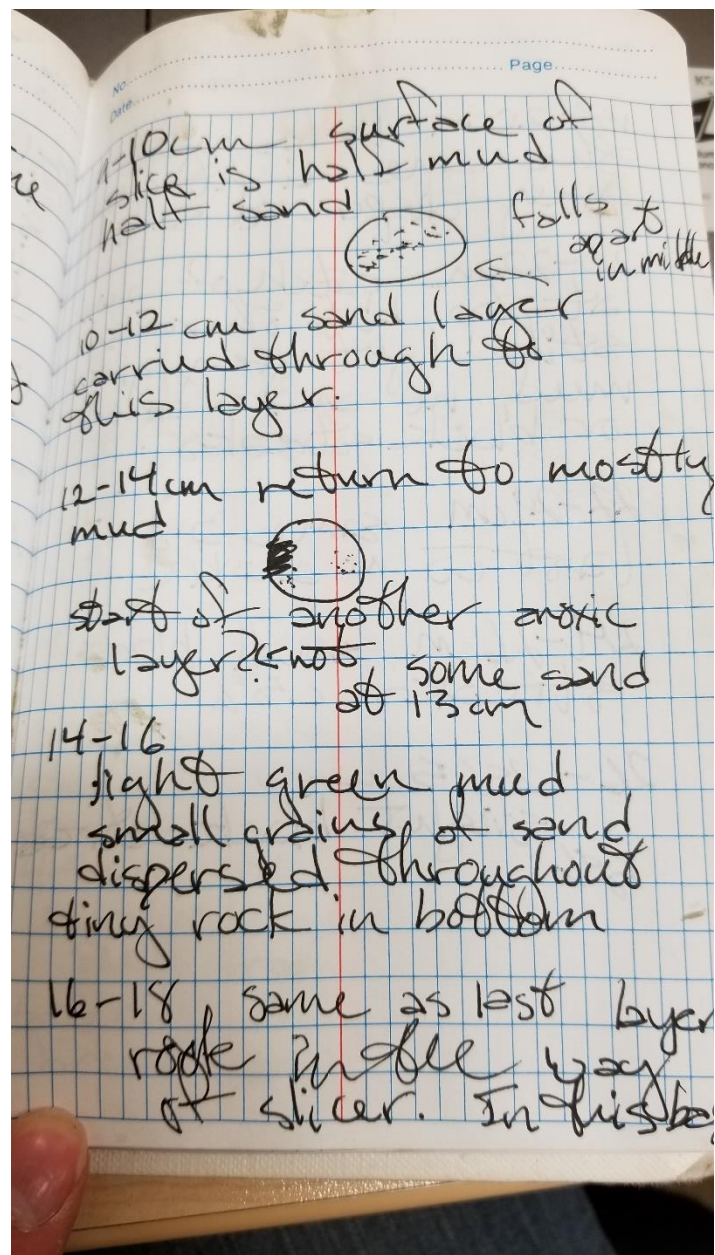 No.
Page
Date
-10cm surface of
slice is half mud
half sand
falls
apart
in middle
10-12 cm sand layer
carried through to
this layer.
12-14cm return to mostly
mud
start of another anoxic
layer? ← not
some sand
at 13cm
14-16
light green mud
small grains of sand
dispersed throughout
tiny rock in bottom
16-18 same as last layer
in the way
of slicer. In this bag